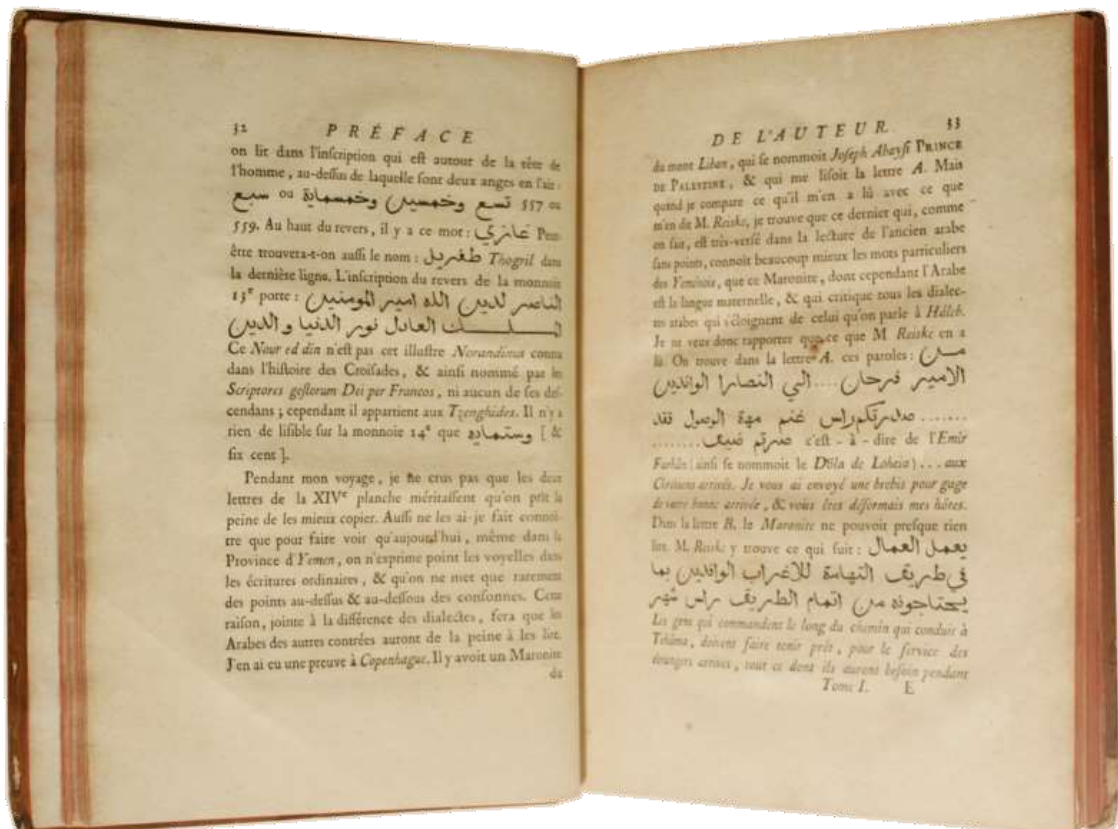 32 PRÉFACE
on lit dans l'inscription qui est autour de la tête de
l'homme, au-dessus de laquelle sont deux anges en l'air :
سبع ou تسع وخمسين وخمسماية 557 ou
559. Au haut du revers, il y a ce mot : غازي Peut-
être trouvera-t-on aussi le nom : طغريل Thogril dans
la derniére ligne. L'inscription du revers de la monnoie
13e porte : الناصر لدين الله امير المومنين
الملك العادل نور الدنيا والدين
Ce Nour ed din n'est pas cet illustre Norandinus connu
dans l'histoire des Croisades, & ainsi nommé par les
Scriptores gestorum Dei per Francos, ni aucun de ses des-
cendans ; cependant il appartient aux Tzenghides. Il n'y a
rien de lisible sur la monnoie 14e que وستمايه [ &
six cent ].
Pendant mon voyage, je ne crus pas que les deux
lettres de la XIVe planche méritassent qu'on prît la
peine de les mieux copier. Aussi ne les ai-je fait connoî-
tre que pour faire voir qu'aujourd'hui, même dans la
Province d'Yemen, on n'exprime point les voyelles dans
les écritures ordinaires, & qu'on ne met que rarement
des points au-dessus & au-dessous des consonnes. Cette
raison, jointe à la différence des dialectes, fera que les
Arabes des autres contrées auront de la peine à les lire.
J'en ai eu une preuve à Copenhague. Il y avoit un Maronite
du
DE L'AUTEUR. 33
du mont Liban, qui se nommoit Joseph Abayssi PRINCE
DE PALESTINE, & qui me lisoit la lettre A. Mais
quand je compare ce qu'il m'en a lû avec ce que
m'en dit M. Reiske, je trouve que ce dernier qui, comme
on sait, est très-versé dans la lecture de l'ancien arabe
sans points, connoît beaucoup mieux les mots particuliers
des Yeménois, que ce Maronite, dont cependant l'Arabe
est la langue maternelle, & qui critique tous les dialec-
tes arabes qui s'éloignent de celui qu'on parle à Háleb.
Je ne veux donc rapporter que ce que M. Reiske en a
lû. On trouve dans la lettre A. ces paroles : مـن
الامير فرحان .... الي النصارا الوافدين
....... صدرتكم راس غنم مهة الوصول فقد
........ صرتم ضيف c'est - à - dire de l'Emir
Farhân (ainsi se nommoit le Dôla de Loheia) ... aux
Chrétiens arrivés. Je vous ai envoyé une brebis pour gage
de votre bonne arrivée, & vous êtes désormais mes hôtes.
Dans la lettre B, le Maronite ne pouvoit presque rien
lire. M. Reiske y trouve ce qui suit : يعمل العمال
في طريق التهامة للاغراب الوافدين بما
يحتاجونه من اتمام الطريق راس شهر
Les gens qui commandent le long du chemin qui conduit à
Tehâma, doivent faire tenir prêt, pour le service des
étrangers arrivés, tout ce dont ils auront besoin pendant
Tome I. E